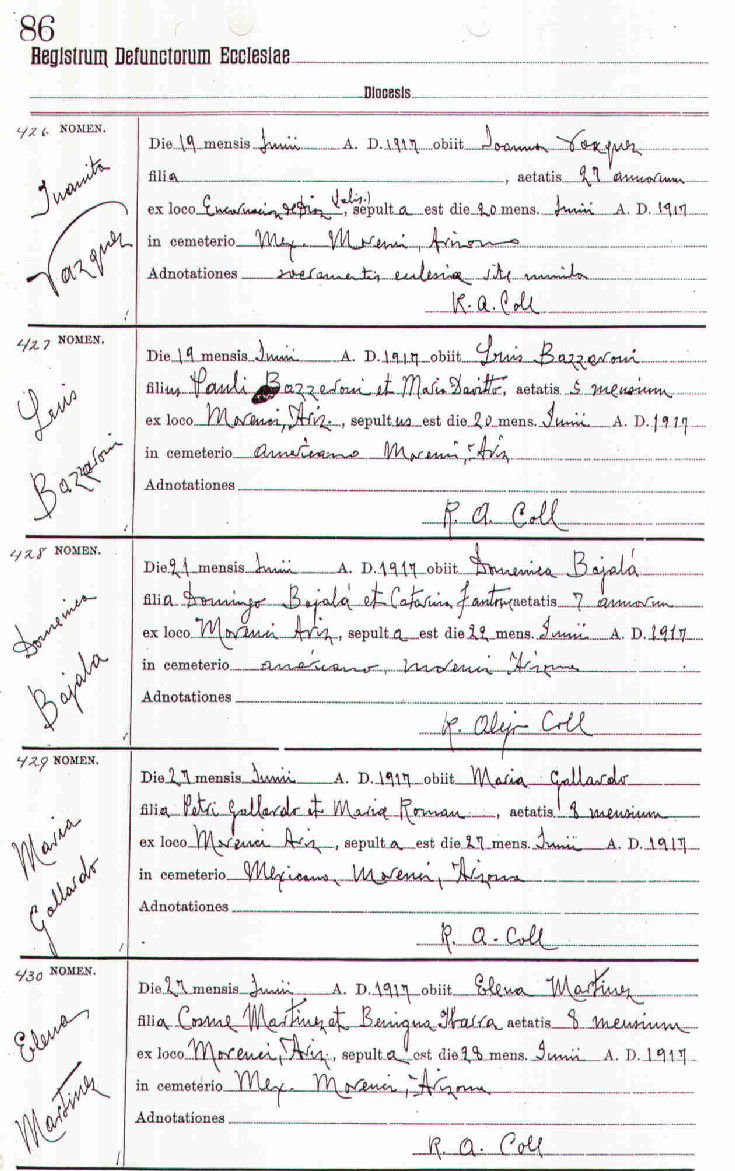 86
Registrum Defunctorum Ecclesiae
Diocesis
426 NOMEN.
Juanita
Vazquez
Die 19 mensis Junii A. D. 1917 obiit Joanna Vazquez
filia , aetatis 27 annorum
ex loco Encarnacion de Diaz (Jalis.), sepulta est die 20 mens. Junii A. D. 1917
in cemeterio Mex. Morenci, Arizona
Adnotationes sacramentis
R. A. Coll
427 NOMEN.
Luis
Bazzaroni
Die 19 mensis Junii A. D. 1917 obiit Luis Bazzaroni
filius Pauli Bazzaroni et Maria , aetatis 5 mensium
ex loco Morenci, Ariz., sepultus est die 20 mens. Junii A. D. 1917
in cemeterio americano Morenci, Ariz
Adnotationes
R. A. Coll
428 NOMEN.
Domenica
Bajalá
Die 21 mensis Junii A. D. 1917 obiit Domenica Bajalá
filia Domingo Bajalá et Catarina aetatis 7 annorum
ex loco Morenci Ariz, sepulta est die 22 mens. Junii A. D. 1917
in cemeterio américano, Morenci Arizona
Adnotationes
R. Alejo Coll
429 NOMEN.
Maria
Gallardo
Die 27 mensis Junii A. D. 1917 obiit Maria Gallardo
filia Petri Gallardo et Maria Roman, aetatis 8 mensium
ex loco Morenci Ariz, sepulta est die 27 mens. Junii A. D. 1917
in cemeterio Mexicano, Morenci, Arizona
Adnotationes
R. A. Coll
430 NOMEN.
Elena
Martinez
Die 27 mensis Junii A. D. 1917 obiit Elena Martinez
filia Cosme Martinez et Benigna Ibarra aetatis 8 mensium
ex loco Morenci, Ariz., sepulta est die 28 mens. Junii A. D. 1917
in cemeterio Mex. Morenci, Arizona
Adnotationes
R. A. Coll